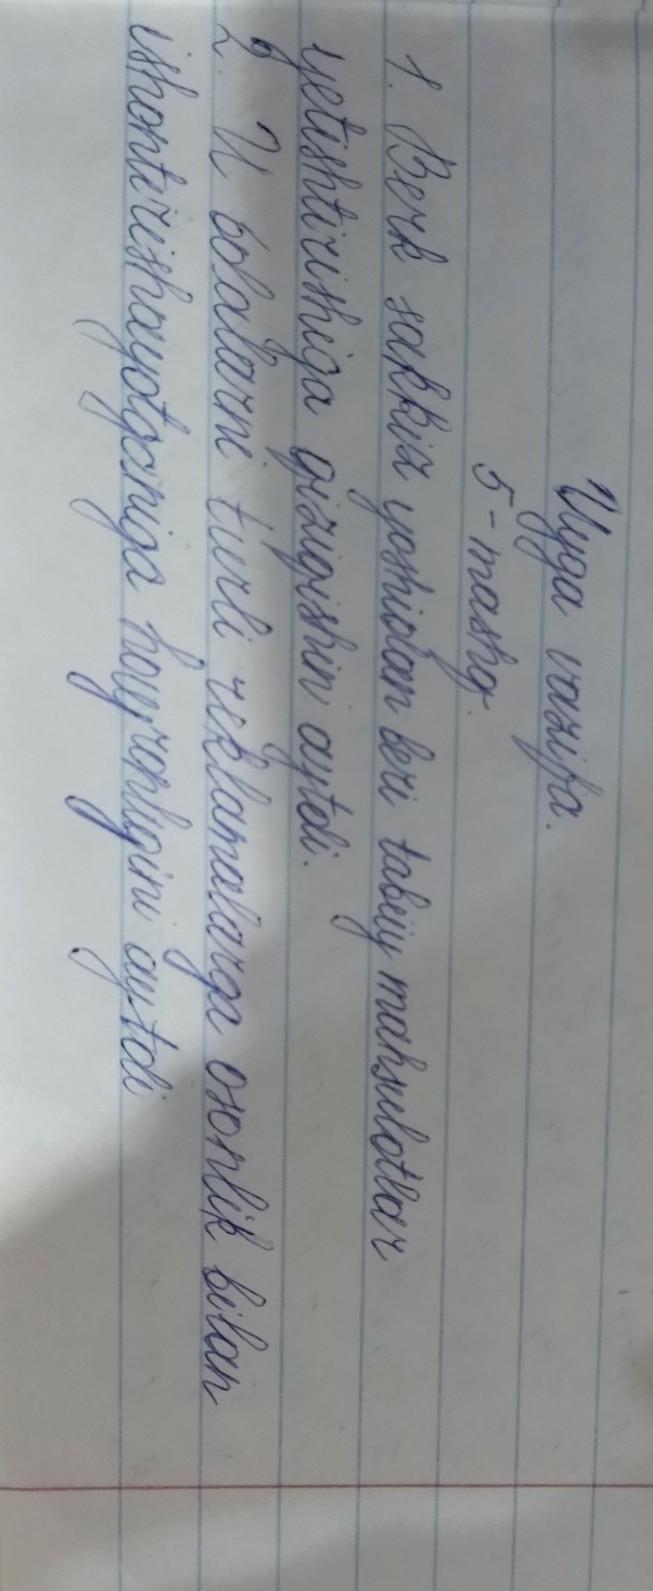 Uyga vazifa.
5-mashq.
1. Berk sakkiz yoshidan beri tabiiy mahsulotlar
yetishtirishiga qiziqishin aytdi.
2. U bolalarni turli reklamalarga osonlik bilan
ishontirishayotganiga hayronligini aytdi